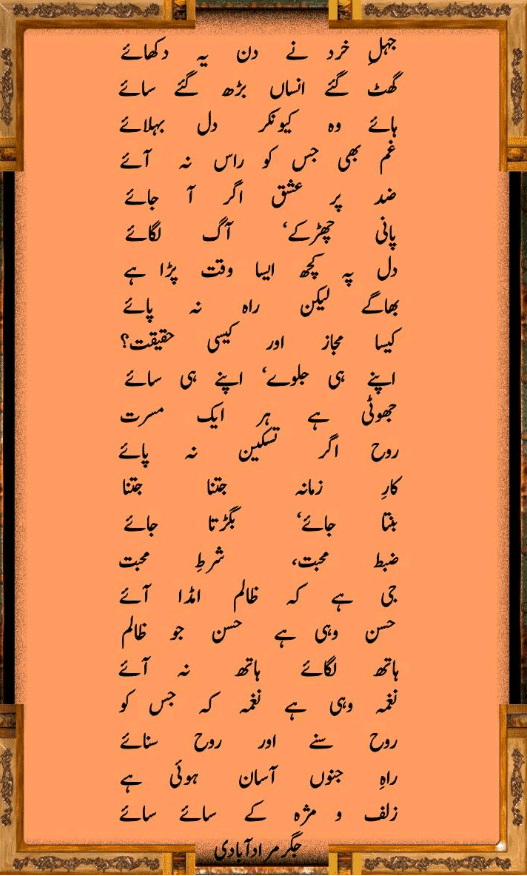 جہلِ خرد نے دن یہ دکھائے
گھٹ گئے انساں بڑھ گئے سائے
ہائے وہ کیونکر دل بہلائے
غم بھی جس کو راس نہ آئے
ضد پر عشق اگر آ جائے
پانی چھڑکے، آگ لگائے
دل پہ کچھ ایسا وقت پڑا ہے
بھاگے لیکن راہ نہ پائے
کیسا مجاز اور کیسی حقیقت؟
اپنے ہی جلوے، اپنے ہی سائے
جھوٹی ہے ہر ایک مسرت
روح اگر تسکین نہ پائے
کارِ زمانہ جتنا جتنا
بنتا جائے، بگڑتا جائے
ضبط محبت، شرطِ محبت
جی ہے کہ ظالم امڈا آئے
حسن وہی ہے حسن جو ظالم
ہاتھ لگائے ہاتھ نہ آئے
نغمہ وہی ہے نغمہ کہ جس کو
روح سنے اور روح سنائے
راہِ جنوں آسان ہوئی ہے
زلف و مژہ کے سائے سائے
جگر مرادآبادی